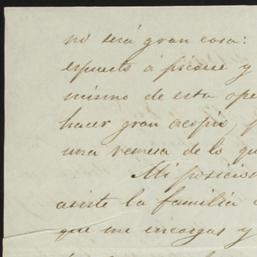 no será gran cosa:
espuesto á picarse y
mismo de esta ope
hacer gran acopio,
una remesa de lo qu
Mi posicion
asiste la familia
que me encargas y